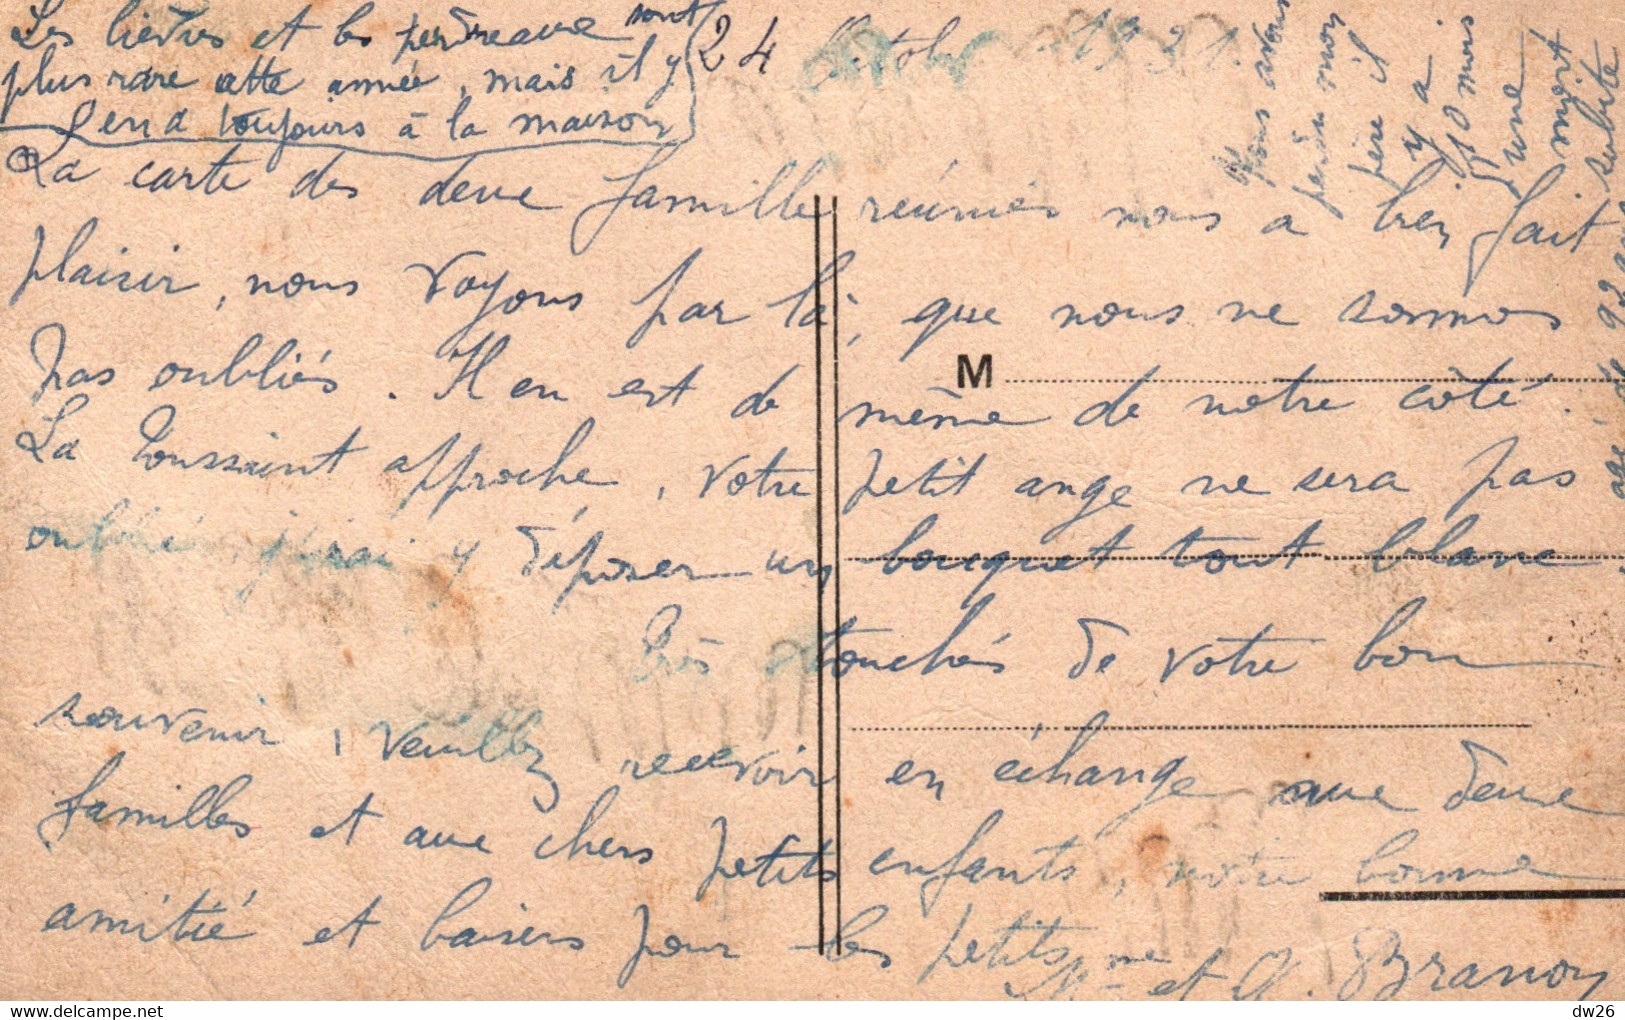 Les lièvres et les perdreaux sont
plus rare cette année, mais il y
en a toujours à la maison
24 Octobre 1931.
Nous avons
perdu mon
père il
y a
10 mois
d'une
mort
subite
agé de
La carte des deux famille réunies nous a bien fait
plaisir, nous voyons par là, que nous ne sommes
pas oubliés. Il en est de même de notre côté.
La Toussaint approche, votre petit ange ne sera pas
oublié, j'irai y déposer un bouquet tout blanc.
Très touchés de votre bon
souvenir, veuillez recevoir en échange aux deux
familles et aux chers petits enfants, notre bonne
amitié et baisers pour les petits
Mme et A. Branon
M
© delcampe.net
dw26